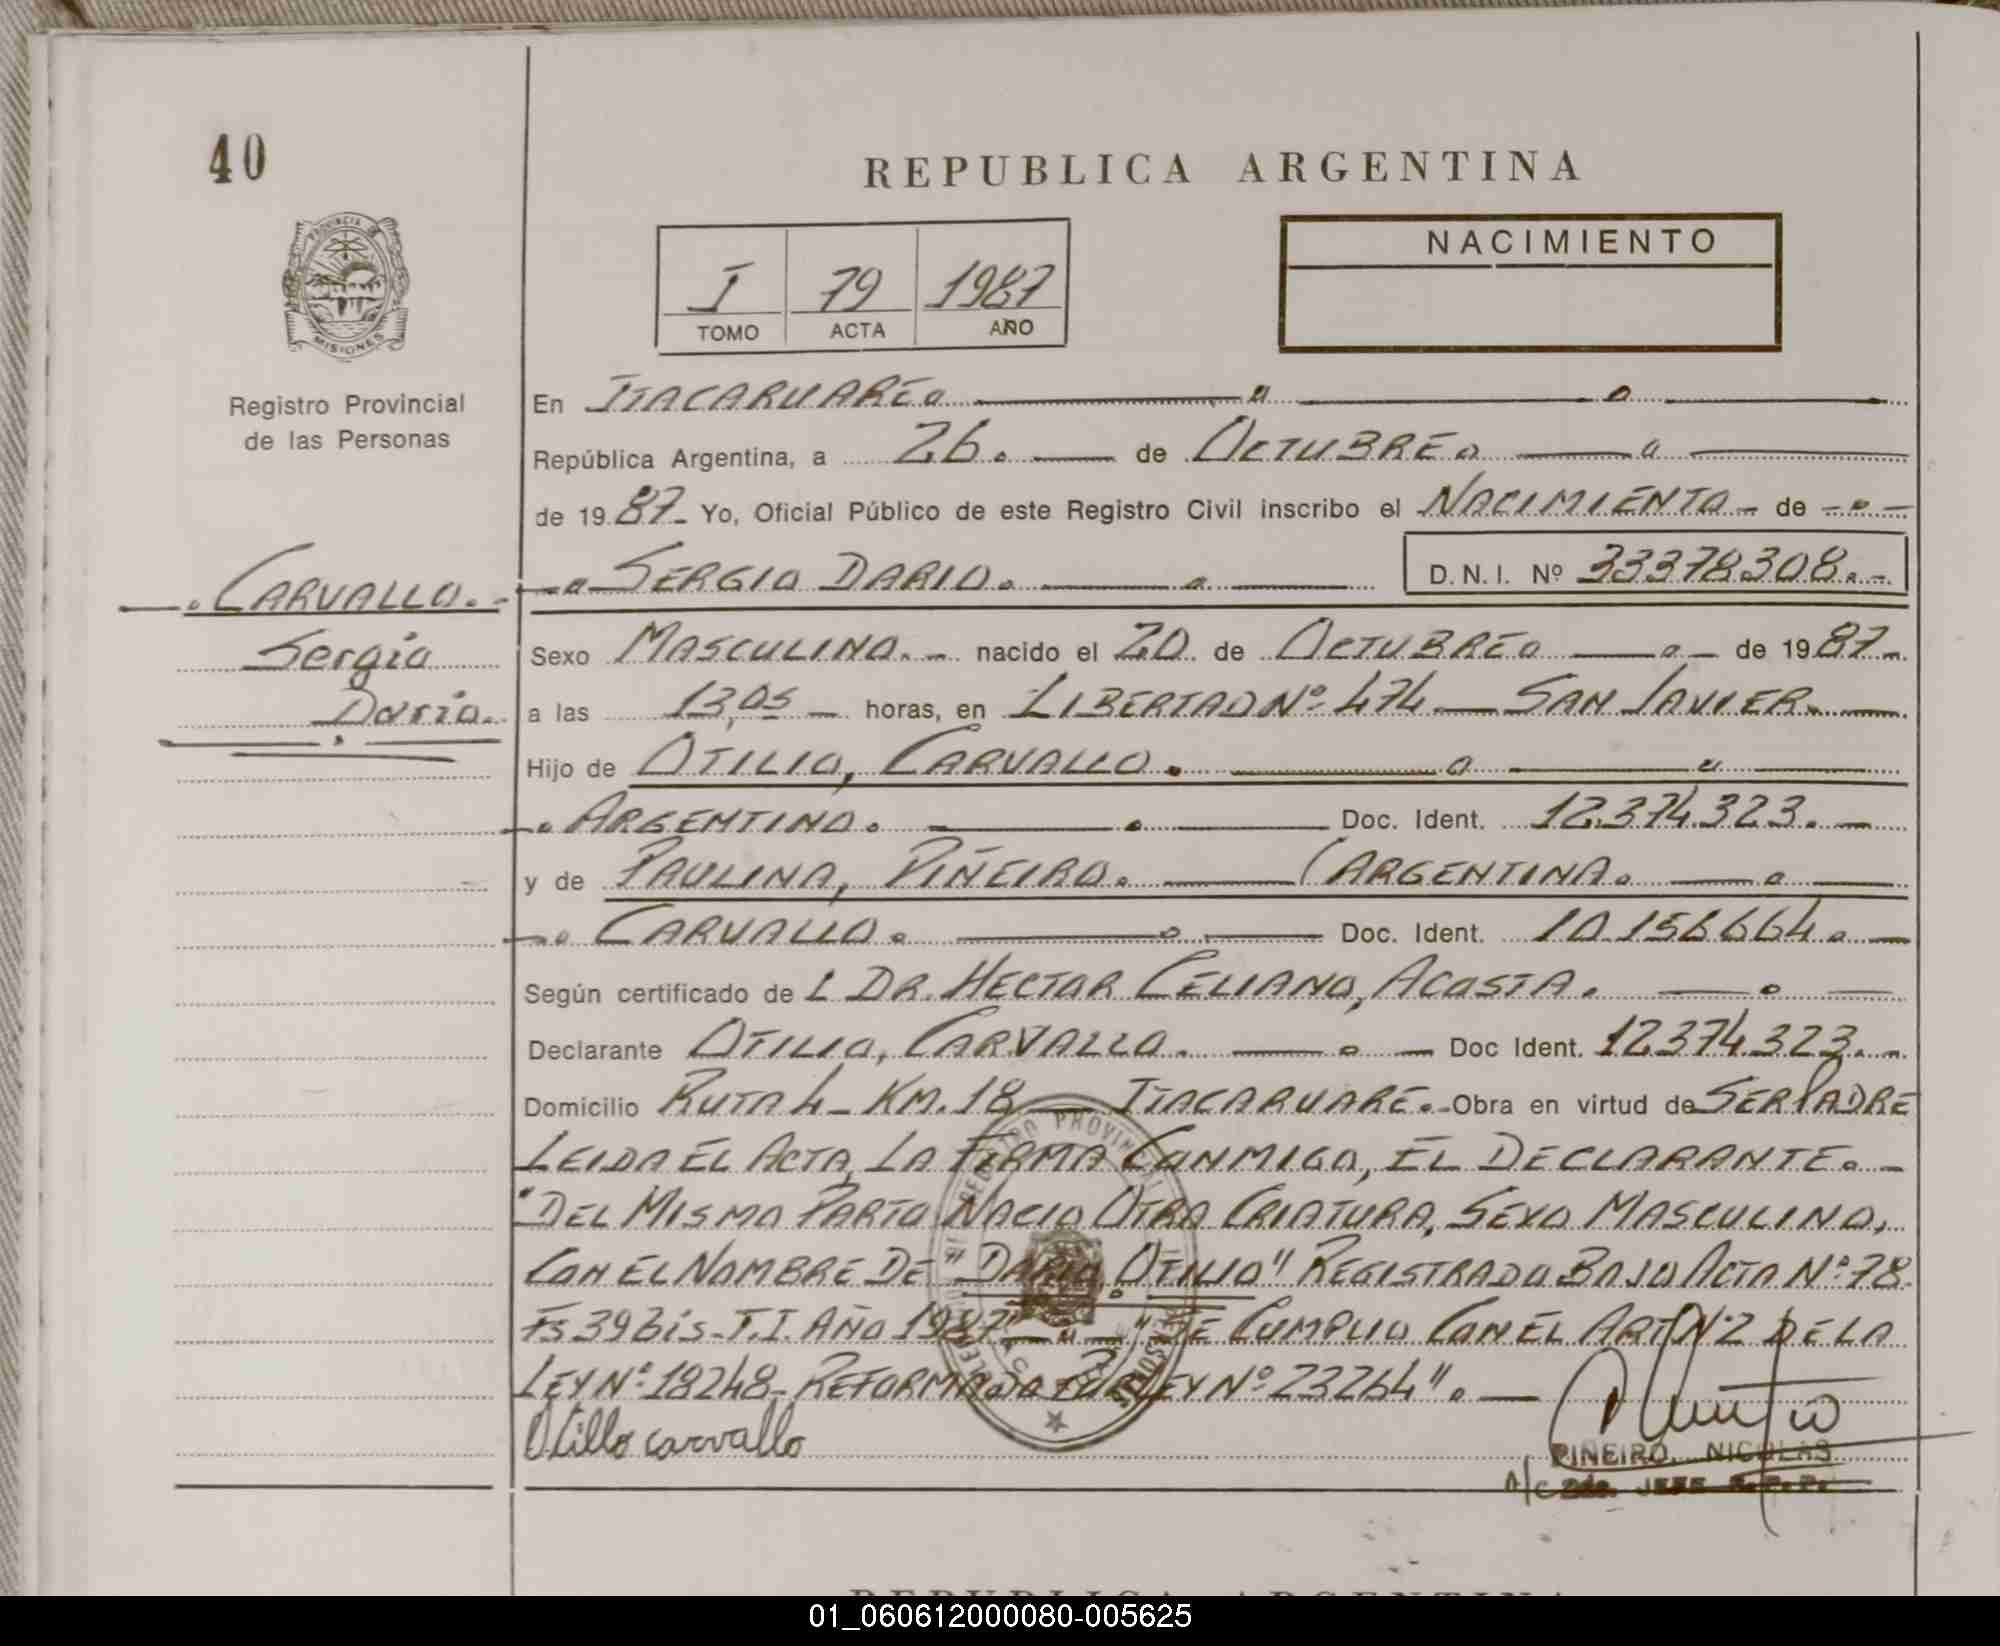 40
REPUBLICA ARGENTINA
PROVINCIA DE MISIONES
I 79 1987
TOMO ACTA AÑO
NACIMIENTO
Registro Provincial
de las Personas
En ITACARUARE
República Argentina, a 26. de OCTUBRE
de 1987 Yo, Oficial Público de este Registro Civil inscribo el NACIMIENTO de
CARVALLO. SERGIO DARIO. D.N.I. Nº 33378.308.
Sergio
Dario.
Sexo MASCULINO. nacido el 20 de OCTUBRE de 1987
a las 13,05 horas, en LIBERTAD Nº 474 SAN JAVIER.
Hijo de OTILIO, CARVALLO.
ARGENTINO. Doc. Ident. 12.374.323.
y de PAULINA, PIÑEIRO. (ARGENTINA.
CARVALLO. Doc. Ident. 10.156.664.
Según certificado de L DR. HECTOR CELIANO, ACOSTA.
Declarante OTILIO, CARVALLO. Doc Ident. 12.374.323.
Domicilio RUTA 4 - KM. 18 - ITACARUARE. Obra en virtud de SER PADRE
LEIDA EL ACTA, LA FIRMA CONMIGO, EL DECLARANTE.
"DEL MISMO PARTO NACIO OTRA CRIATURA, SEXO MASCULINO,
CON EL NOMBRE DE "DARIO OTILIO" REGISTRADO BAJO ACTA Nº 78
Fs 39 bis - T.I. AÑO 1987" "SE CUMPLIO CON EL ART Nº 2 DE LA
LEY Nº 18248 - REFORMADA POR LEY Nº 23264".
Otilio carvallo
PIÑEIRO, NICOLAS
A/C 2do. JEFE R.P.P.
REPUBLICA ARGENTINA
01_060612000080-005625